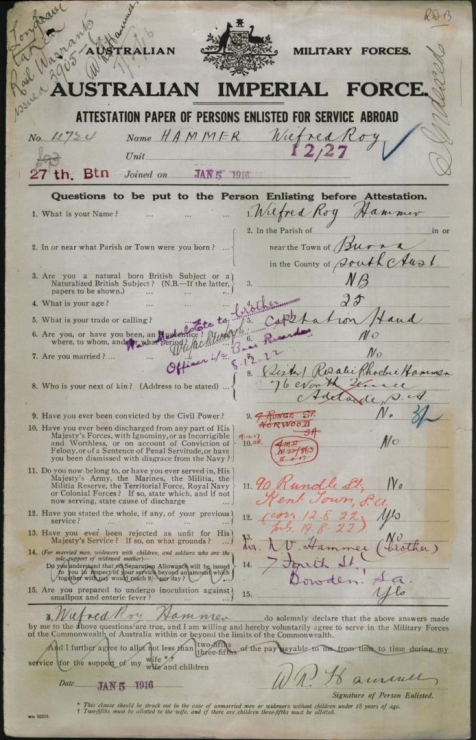 Rail Warrant
issued
R D B
Indexed
AUSTRALIAN MILITARY FORCES.
AUSTRALIAN IMPERIAL FORCE.
ATTESTATION PAPER OF PERSONS ENLISTED FOR SERVICE ABROAD
No. 4724 Name HAMMER Wilfred Roy
Unit 12/27
27 th. Btn Joined on JAN 5 1916
Questions to be put to the Person Enlisting before Attestation.
1. What is your Name? ... 1. Wilfred Roy Hammer
2. In or near what Parish or Town were you born? ... 2. In the Parish of in or
near the Town of Burra
in the County of South Aust
3. Are you a natural born British Subject or a
Naturalized British Subject? (N.B.—If the latter,
papers to be shown.) 3. NB
4. What is your age? 25
5. What is your trade or calling? 5. Station Hand
6. Are you, or have you been, an Apprentice? If so,
where, to whom, and for what period? 6. No
7. Are you married? ... 7. No
War Medals etc to brother
Capt
Officer i/c Base Records
8.12.22
8. Who is your next of kin? (Address to be stated) ... 8. Sister Rosalie Phoebe Hammer
76 North Terrace
Adelaide S.A
9. Have you ever been convicted by the Civil Power? 9. No
4 RUNGE ST.
NORWOOD
SA
10. Have you ever been discharged from any part of His
Majesty's Forces, with Ignominy, or as Incorrigible
and Worthless, or on account of Conviction of
Felony, or of a Sentence of Penal Servitude, or have
you been dismissed with disgrace from the Navy? 10. No
11. Do you now belong to, or have you ever served in, His
Majesty's Army, the Marines, the Militia, the
Militia Reserve, the Territorial Force, Royal Navy
or Colonial Forces? If so, state which, and if not
now serving, state cause of discharge 11. No
90 Rundle St,
Kent Town, S.a.
12. Have you stated the whole, if any, of your previous
service? 12. Yes
13. Have you ever been rejected as unfit for His
Majesty's Service? If so, on what grounds? 13.
Hammer (brother)
7 Fourth St,
Bowden. S.a.
14. (For married men, widowers with children, and soldiers who are the
sole support of widowed mother)—
Do you understand that no Separation Allowance will be issued
to you in respect of your service beyond an amount which
together with pay would reach 8/- per day? 14.
15. Are you prepared to undergo inoculation against
smallpox and enteric fever? 15. Yes
I, Wilfred Roy Hammer do solemnly declare that the above answers made
by me to the above questions are true, and I am willing and hereby voluntarily agree to serve in the Military Forces
of the Commonwealth of Australia within or beyond the limits of the Commonwealth.
And I further agree to allot not less than two-fifths three-fifths of the pay payable to me from time to time during my
service for the support of my wife wife and children
Date JAN 5 1916
W R Hammer
Signature of Person Enlisted.
* This clause should be struck out in the case of unmarried men or widowers without children under 18 years of age.
† Two-fifths must be allotted to the wife, and if there are children three-fifths must be allotted.